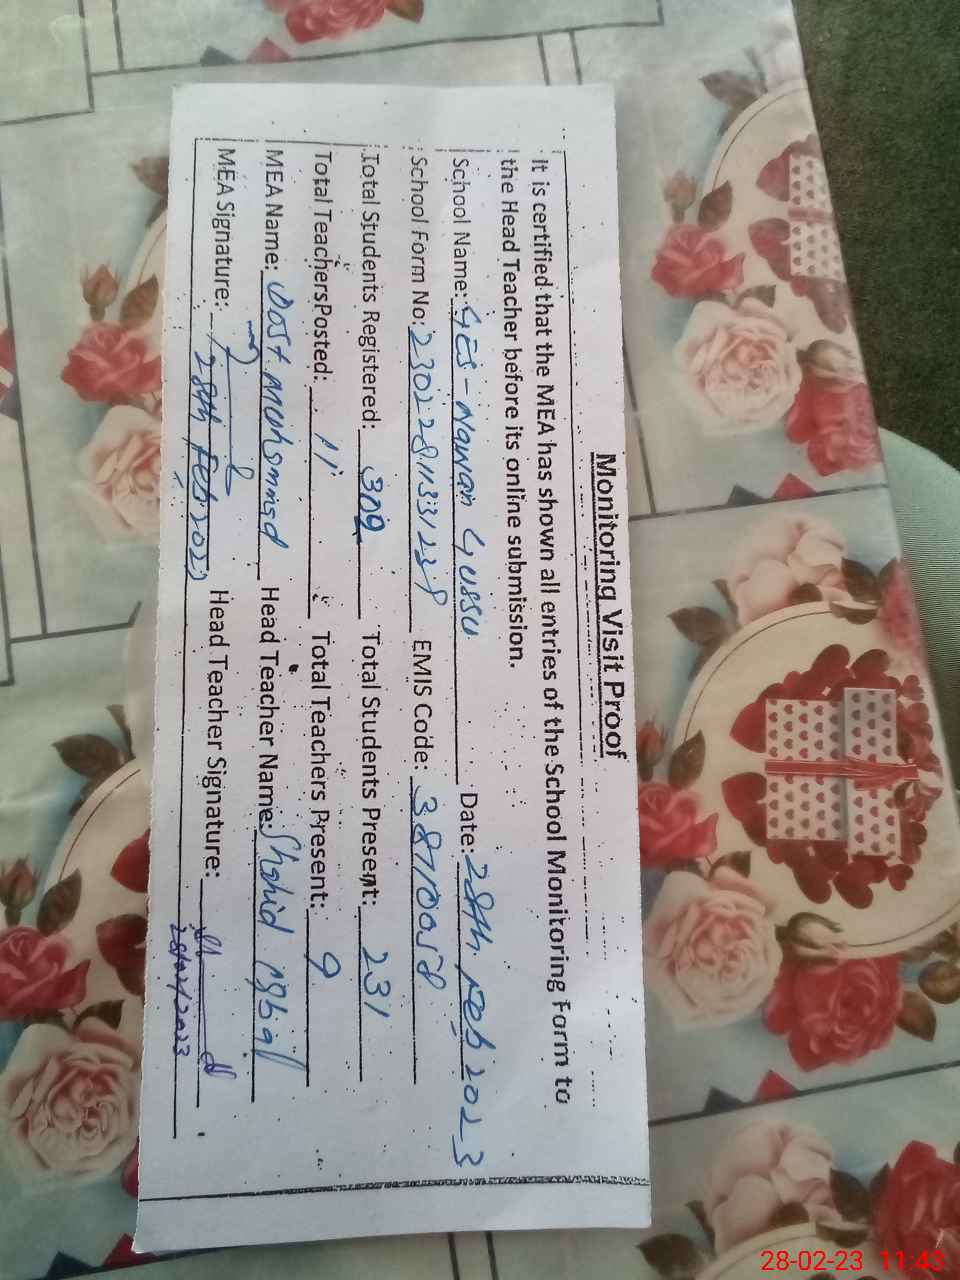 Monitoring Visit Proof
It is certified that the MEA has shown all entries of the School Monitoring Form to
the Head Teacher before its online submission.
School Name: GES - Nawan Gussu Date: 28th Feb 2023
School Form No: EMIS Code: 38710058
Total Students Registered: 309 Total Students Present: 231
Total TeachersPosted: 11 Total Teachers Present: 9
MEA Name: Dost Muhammad Head Teacher Name: Shahid Iqbal
MEA Signature: Head Teacher Signature:
28th Feb 2023 28/02/2023
28-02-23 11:43